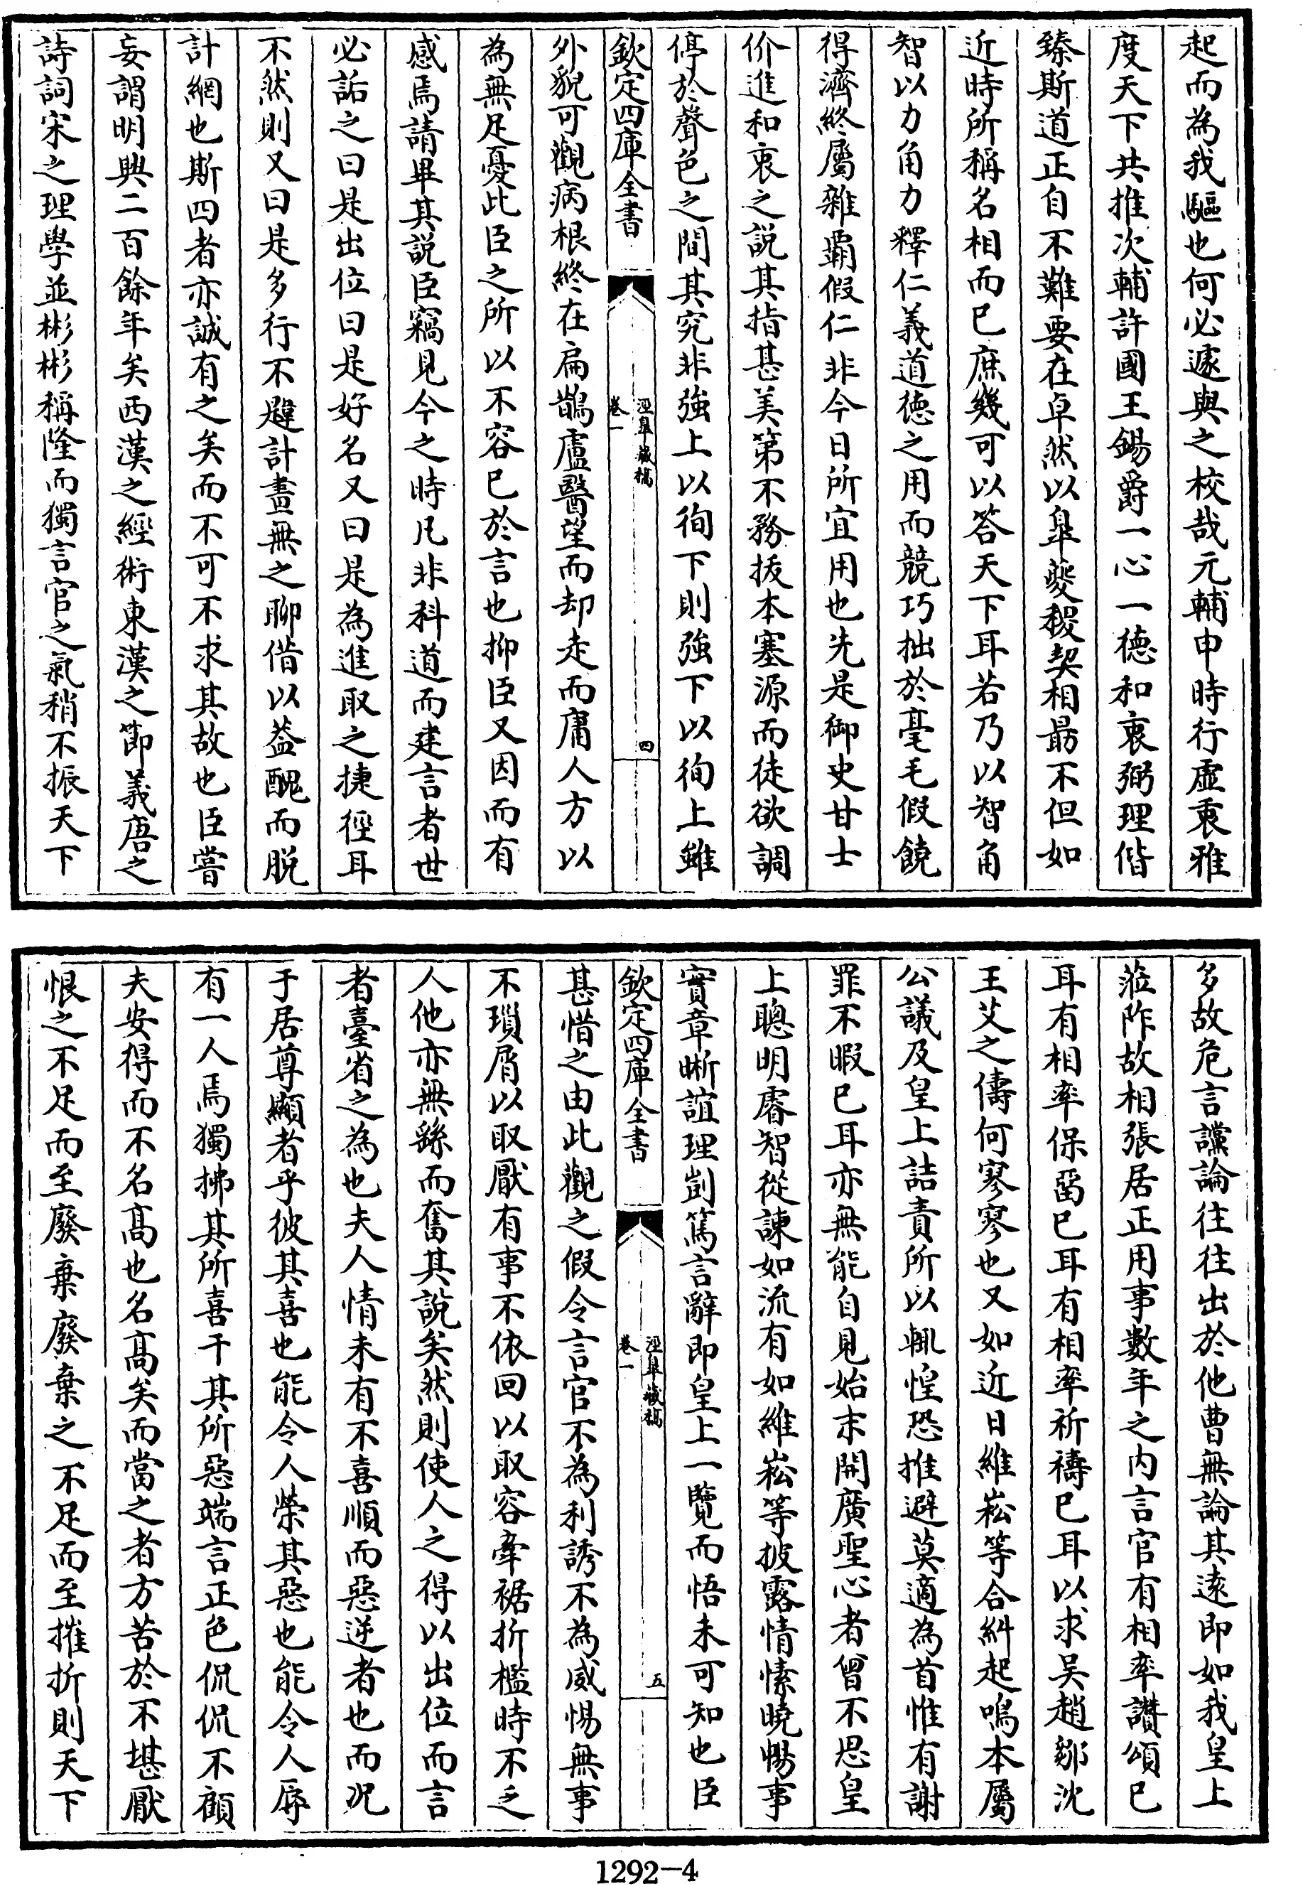 起而為我驅也何必遽與之校哉元輔申時行虛衷雅
度天下共推次輔許國王錫爵一心一德和衷弼理偕
臻斯道正自不難要在卓然以臯夔稷契相勗不但如
近時所稱名相而已庶幾可以答天下耳若乃以智角
智以力角力釋仁義道德之用而競巧拙於毫毛假饒
得濟終屬雜覇假仁非今日所宜用也先是御史甘士
价進和衷之說其指甚美第不務拔本塞源而徒欲調
停於聲色之間其究非強上以徇下則強下以徇上雖
欽定四庫全書
涇臯藏稿
卷一
四
外貌可觀病根終在扁鵲盧醫望而却走而庸人方以
為無足憂此臣之所以不容已於言也抑臣又因而有
感焉請畢其說臣竊見今之時凡非科道而建言者世
必詬之曰是出位曰是好名又曰是為進取之捷徑耳
不然則又曰是多行不韙計畫無之聊借以葢醜而脫
計網也斯四者亦誠有之矣而不可不求其故也臣嘗
妄謂明興二百餘年矣西漢之經術東漢之節義唐之
詩詞宋之理學並彬彬稱隆而獨言官之氣稍不振天下
多故危言讜論往往出於他曹無論其遠即如我皇上
蒞阼故相張居正用事數年之內言官有相率讚頌已
耳有相率保留已耳有相率祈禱已耳以求吳趙鄒沈
王艾之儔何寥寥也又如近日維崧等合糾起鳴本屬
公議及皇上詰責所以輒惶恐推避莫適為首惟有謝
罪不暇已耳亦無能自見始末開廣聖心者曾不思皇
上聰明睿智從諫如流有如維崧等披露情愫曉暢事
實章晣誼理剴篤言辭即皇上一覽而悟未可知也臣
欽定四庫全書
涇臯藏稿
卷一
五
甚惜之由此觀之假令言官不為利誘不為威惕無事
不瑣屑以取厭有事不依回以取容牽裾折檻時不乏
人他亦無繇而奮其說矣然則使人之得以出位而言
者臺省之為也夫人情未有不喜順而惡逆者也而况
于居尊顯者乎彼其喜也能令人榮其惡也能令人辱
有一人焉獨拂其所喜干其所惡端言正色侃侃不顧
夫安得而不名髙也名髙矣而當之者方苦於不堪厭
恨之不足而至廢棄廢棄之不足而至摧折則天下
1292-4